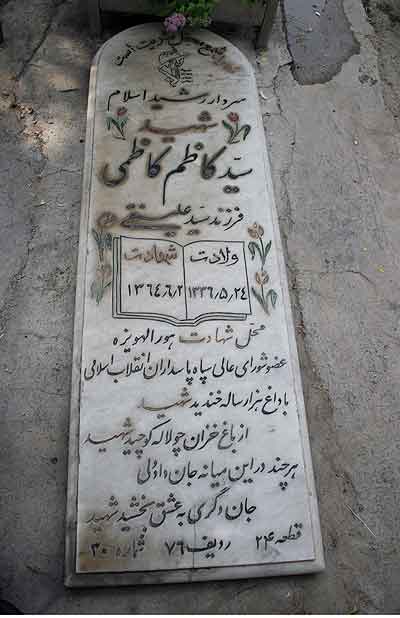 سردار رشید اسلام
شهید
سیّد کاظم کاظمی
فرزند سیّد علینقی
ولادت شهادت
۱۳۳۶،۵،۲۴ ۱۳۶۴،۶،۲
محل شهادت هورالهویزه
عضو شورای عالی سپاه پاسداران انقلاب اسلامی
با داغ هزار ساله خندید شهید
از باغ خزان چو لاله کوچید شهید
هرچند در این میانه جان داد ولی
جان دگری به عشق بخشید شهید
قطعه ۲۴ ردیف ۷۶ شماره ۳۰